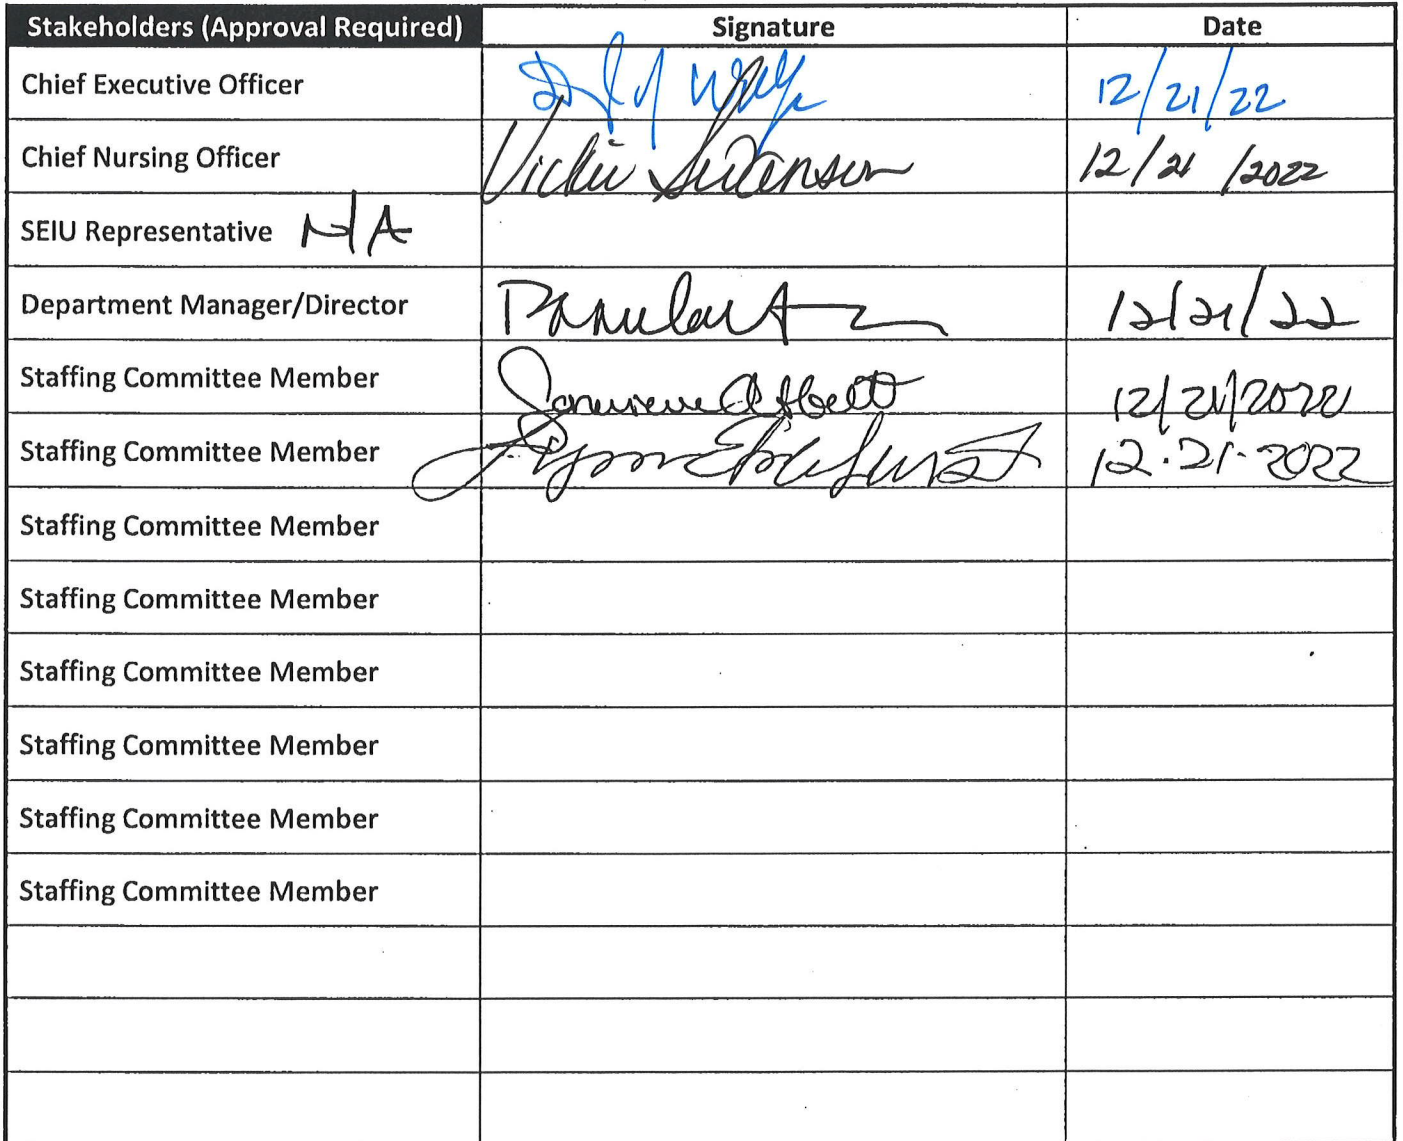 Stakeholders (Approval Required) Signature Date
Chief Executive Officer 12/21/22
Chief Nursing Officer Vickie Swanson 12/21/2022
SEIU Representative N/A
Department Manager/Director 12/21/22
Staffing Committee Member 12/21/2022
Staffing Committee Member 12.21.2022
Staffing Committee Member
Staffing Committee Member
Staffing Committee Member
Staffing Committee Member
Staffing Committee Member
Staffing Committee Member